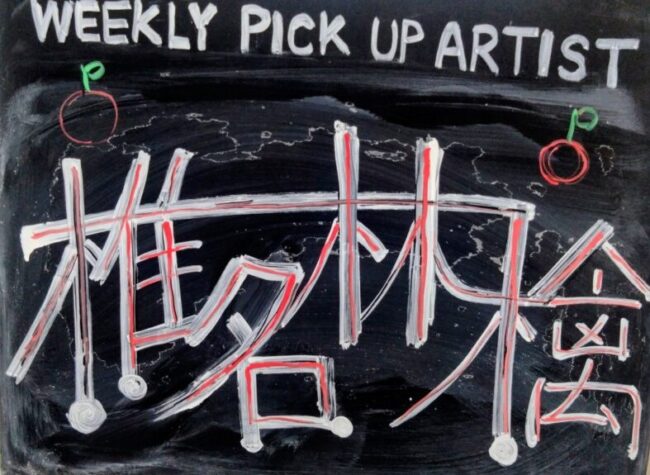 WEEKLY PICK UP ARTIST
椎名林檎